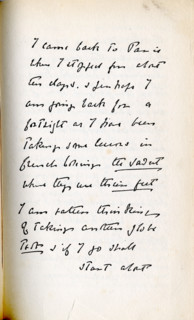 I came back to Paris
when I stopped for about
ten days. & perhaps I
am going back for a
fortnight as I have been
taking some lessons in
french boxing the savat
where they use their feet
I am rather thinking
of taking another glo be
trot & if I go shall
start about